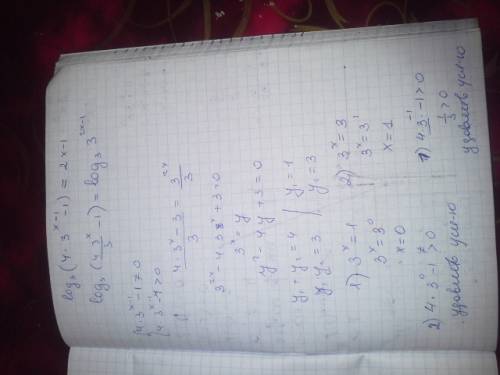 log₃(4·3ˣ⁻¹ -1) = 2x-1
log₃(4·3ˣ/3 -1) = log₃ 3²ˣ⁻¹
{4·3ˣ⁻¹ -1 ≠ 0
{4·3ˣ⁻¹ -1 > 0
(4·3ˣ - 3)/3 = 3²ˣ/3
3²ˣ - 4·3ˣ + 3 = 0
3ˣ = y
y² - 4y + 3 = 0
y₁ + y₂ = 4 | y₁ = 1
y₁ y₂ = 3 | y₂ = 3
1) 3ˣ = 1 2) 3ˣ = 3
3ˣ = 3⁰ 3ˣ = 3¹
x = 0 x = 1
2) 4·3⁰ -1 > 0 1) 4·3⁻¹ -1 > 0
удовлетв усл-ю 1/3 > 0
удовлетв усл-ю